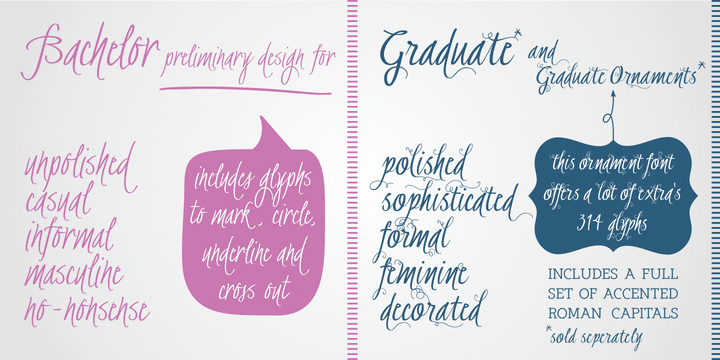 Bachelor preliminary design for
unpolished
casual
informal
masculine
no-nonsense
includes glyphs
to mark, circle,
underline and
cross out
Graduate* and
Graduate Ornaments*
polished
sophisticated
formal
feminine
decorated
this ornament font
offers a lot of extra's
314 glyphs
INCLUDES A FULL
SET OF ACCENTED
ROMAN CAPITALS
*sold seperately